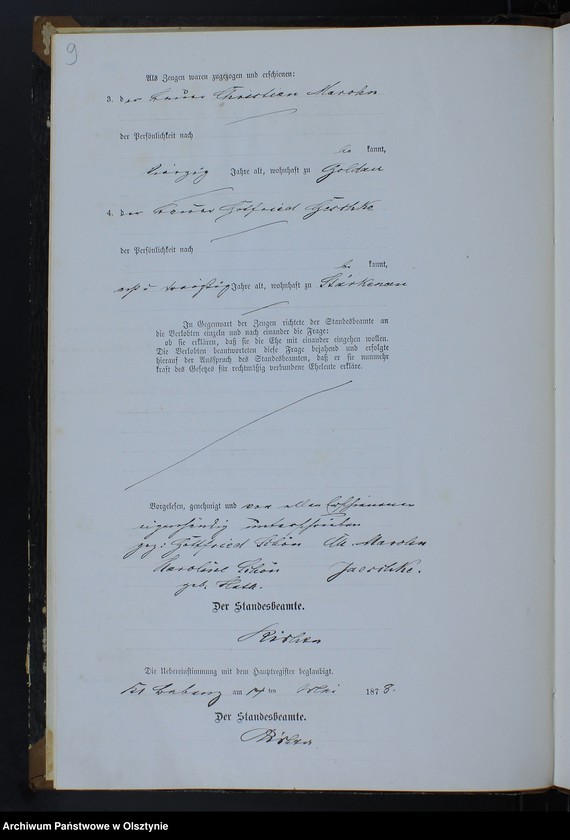 9
Als Zeugen waren zugezogen und erschienen:
3. der Bauer Christian Marohn
der Persönlichkeit nach
be kannt,
vierzig Jahre alt, wohnhaft zu Goldau
4. der Bauer Gottfried
der Persönlichkeit nach
be kannt,
Jahre alt, wohnhaft zu Stärkenau
In Gegenwart der Zeugen richtete der Standesbeamte an
die Verlobten einzeln und nach einander die Frage:
ob sie erklären, daß sie die Ehe mit einander eingehen wollen.
Die Verlobten beantworteten diese Frage bejahend und erfolgte
hierauf der Ausspruch des Standesbeamten, daß er sie nunmehr
kraft des Gesetzes für rechtmäßig verbundene Eheleute erkläre.
Vorgelesen, genehmigt und von allen Erschienenen
eigenhändig unterschrieben
gez: Gottfried Schön Ch. Marohn
Karoline Schön Jaeschke.
geb.
Der Standesbeamte.
Die Uebereinstimmung mit dem Hauptregister beglaubigt.
am ten Mai 1878.
Der Standesbeamte.
Archiwum Państwowe w Olsztynie